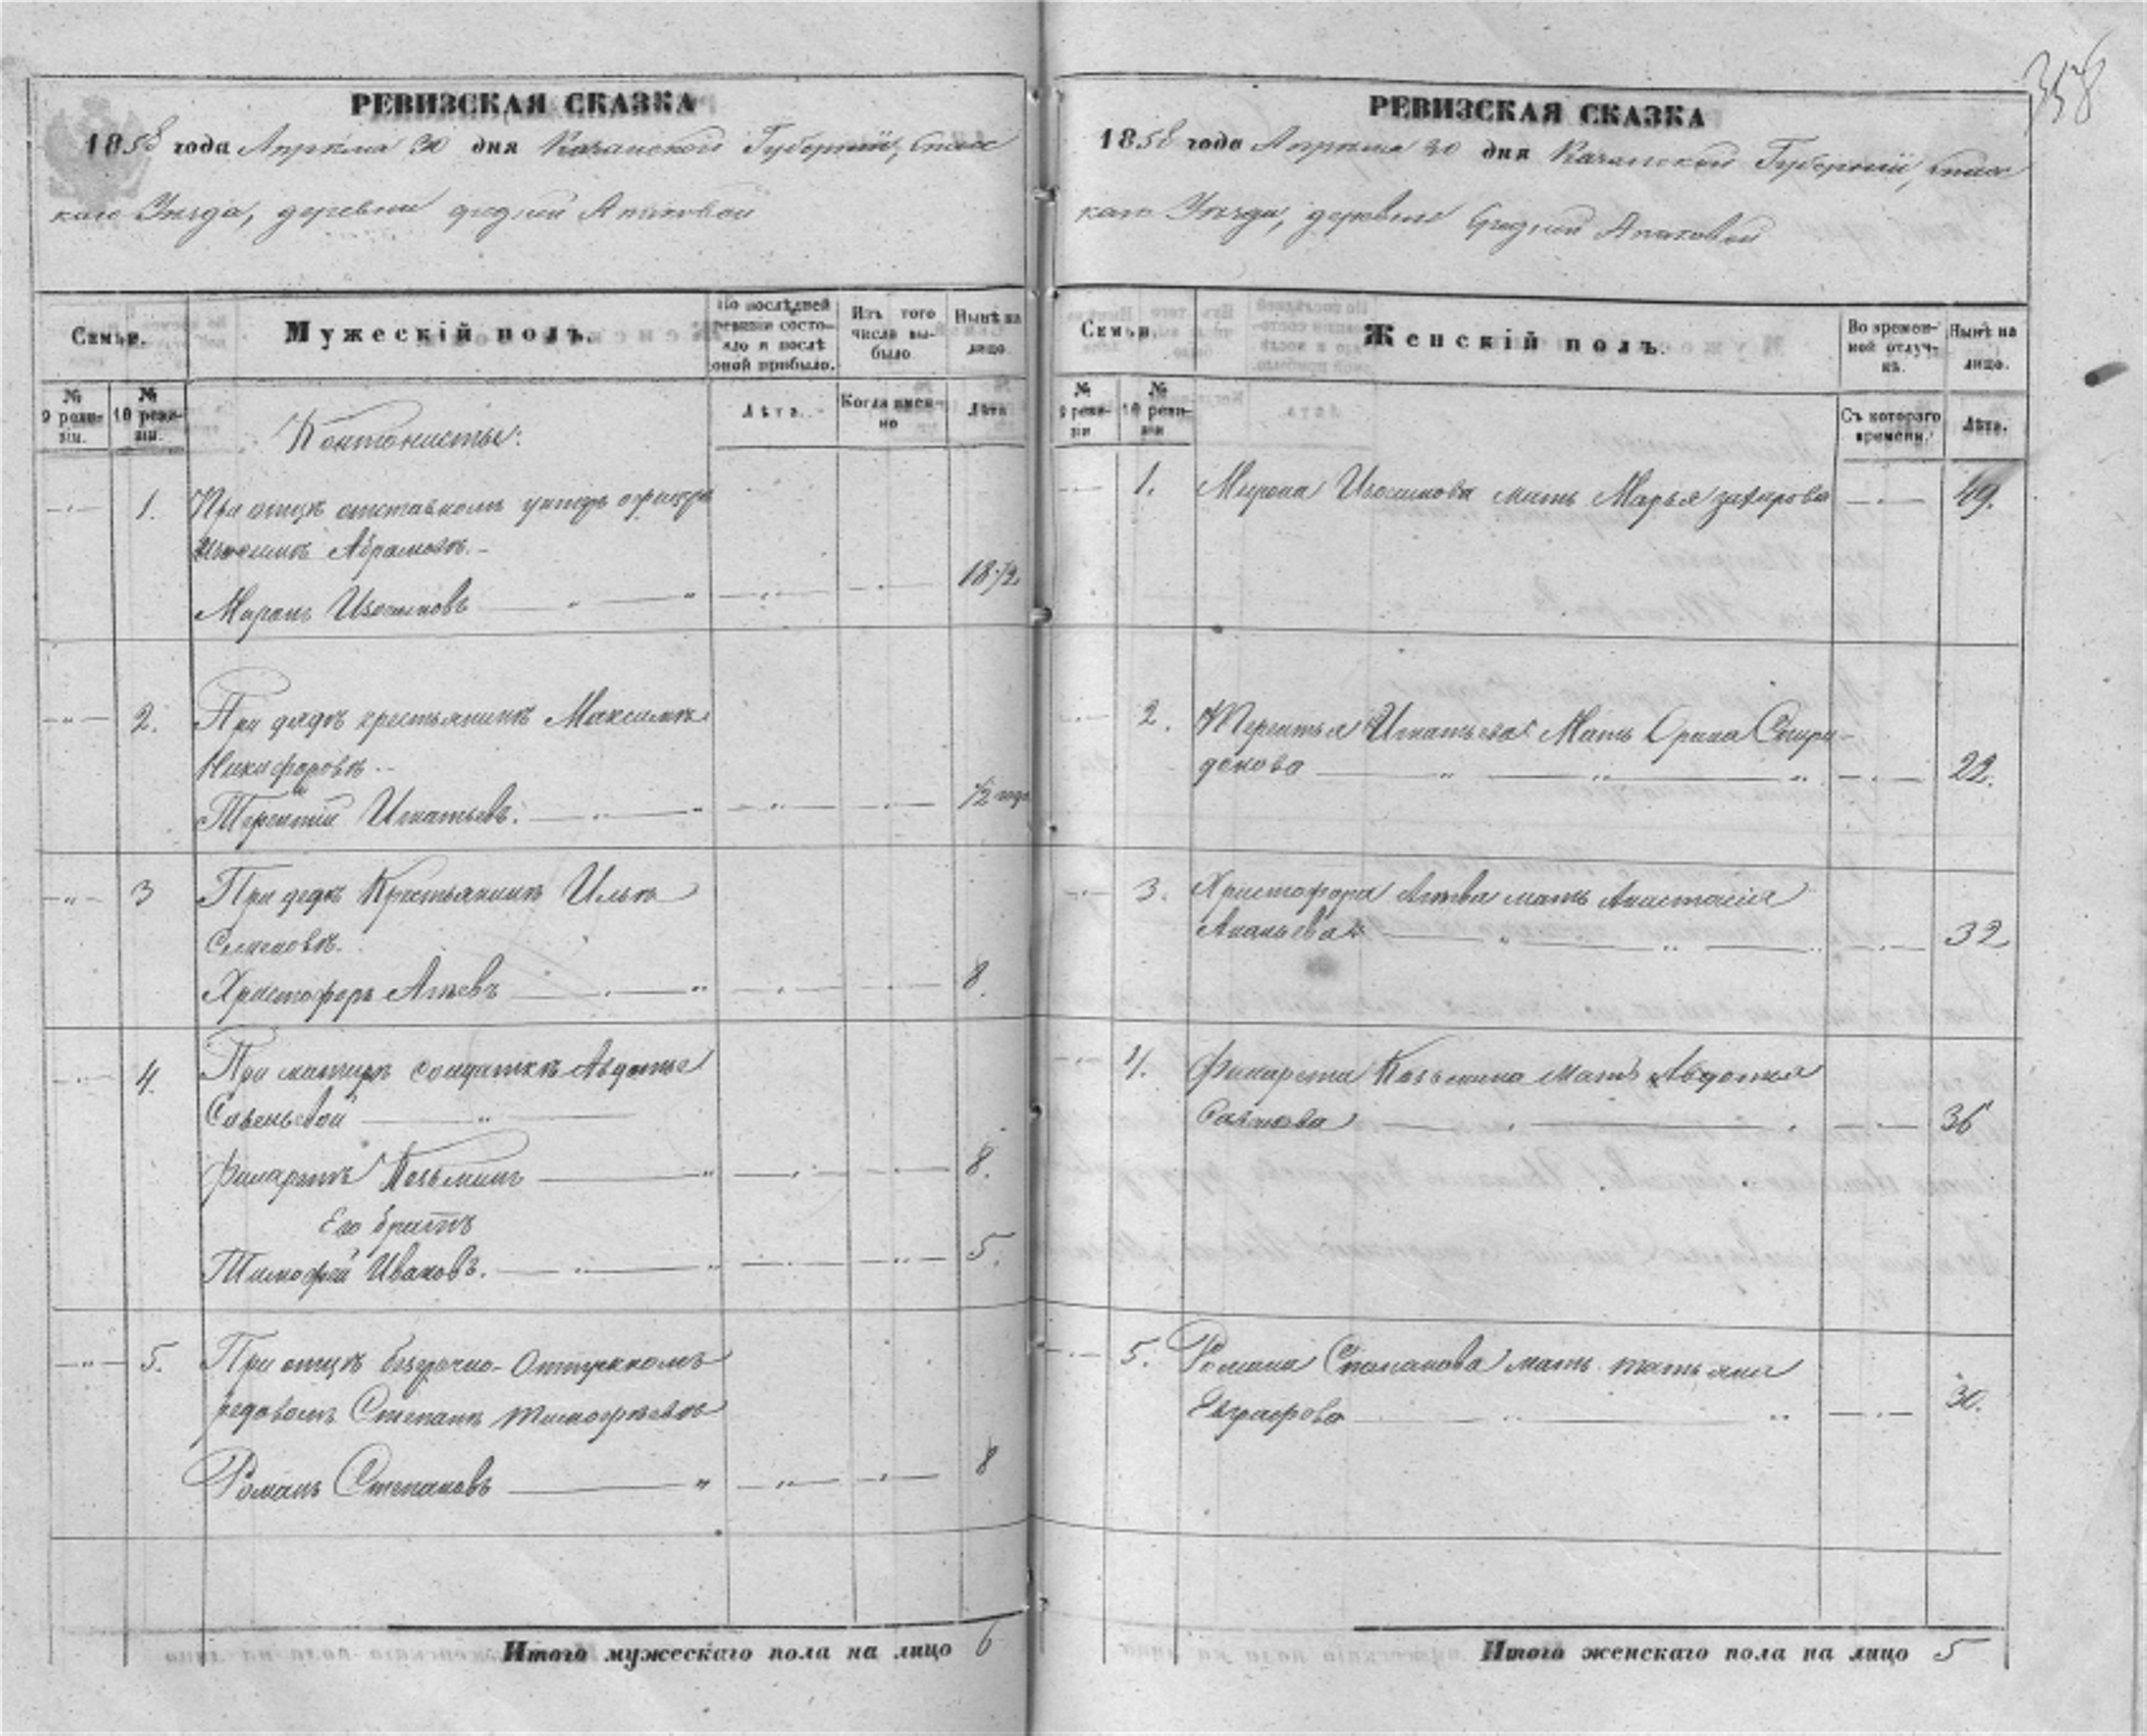 358
РЕВИЗСКАЯ СКАЗКА
1858 года Апрѣля 30 дня Казанской Губерніи, Спасс
каго Уѣзда, деревни средней Апаковой
Семьи.
Мужескій полъ.
По послѣдней ревизіи состояло и послѣ оной прибыло.
Изъ того числа выбыло
Нынѣ на лицо.
№ 9 ревизіи.
№ 10 ревизіи.
Лѣта.
Когда именно
Лѣта
Контонисты:
1. При отцѣ отставномъ унтеръ офицерѣ
Абрамовѣ.
Миронъ Изосимовъ 18 1/2
2. При дядѣ крестьянинѣ Максимѣ
Никифоровѣ
Терентий Игнатьевъ. 1/2 года
3 При дедѣ Крестьянинѣ Ильѣ
Семеновѣ.
Христофоръ 8.
4. При матерѣ солдаткѣ Авдотье
Савельевой
Филаретъ Козьминъ 8.
Его братъ
Тимофей Ивановъ. 5.
5. При отцѣ безсрочно-Отпускномъ
редовомъ Степанѣ Тимофѣевѣ
Романъ Степановъ 8
Итого мужескаго пола на лицо 6
РЕВИЗСКАЯ СКАЗКА
1858 года Апрѣля 30 дня Казанской Губерніи, Спасс
каго Уѣзда, деревни Средней Апаковой
Семьи.
Женскій полъ.
Во временной отлучкѣ.
Нынѣ на лицо.
№ 9 ревизіи
№ 10 ревизіи
Съ котораго времени.
Лѣта.
1. Мирона Изосимова мать Марья захарова 49.
2. Терентья Игнатьева Мать Орина Спири-
донова 22.
3. Христофора мать Анастасія
Ананьева 32
4. Филарета Козьмина Мать Авдотья
36
5. Романа Степанова мать татьяна
Евграфова 30.
Итого женскаго пола на лицо 5